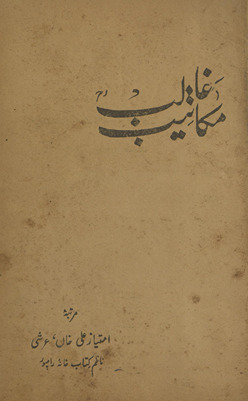 مکاتیب غالب
مرتبۂ
امتیاز علی خاں، عرشی
ناظم کتاب خانہ رامپور